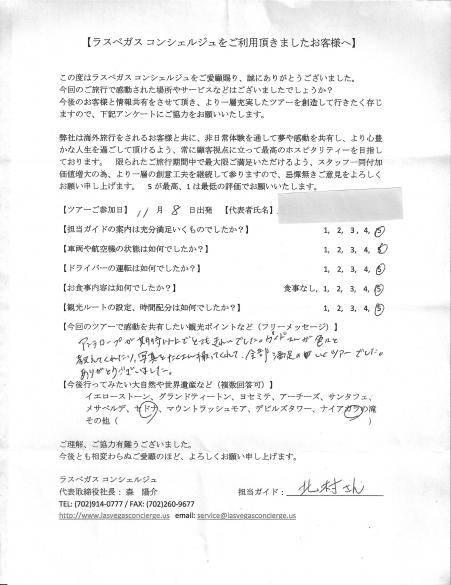 【ラスベガス コンシェルジュをご利用頂きましたお客様へ】
この度はラスベガス コンシェルジュをご愛顧賜り、誠にありがとうございました。
今回のご旅行で感動された場所やサービスなどはございましたでしょうか？
今後のお客様と情報共有をさせて頂き、より一層充実したツアーを創造して行きたく存じ
ますので、下記アンケートにご協力をお願いいたします。
弊社は海外旅行をされるお客様と共に、非日常体験を通して夢や感動を共有し、より心豊
かな人生を過ごして頂けるよう、常に顧客視点に立って最高のホスピタリティーを目指し
ております。 限られたご旅行期間中で最大限ご満足いただけるよう、スタッフ一同付加
価値増大の為、より一層の創意工夫を継続して参りますので、忌憚無きご意見をよろしく
お願い申し上げます。 5が最高、1は最低の評価でお願いいたします。
【ツアーご参加日】 11 月 8 日出発 【代表者氏名】
【担当ガイドの案内は充分満足いくものでしたか？】 1, 2, 3, 4, 5
【車両や航空機の状態は如何でしたか？】 1, 2, 3, 4, 5
【ドライバーの運転は如何でしたか？】 1, 2, 3, 4, 5
【お食事内容は如何でしたか？】 食事なし, 1, 2, 3, 4, 5
【観光ルートの設定、時間配分は如何でしたか？】 1, 2, 3, 4, 5
【今回のツアーで感動を共有したい観光ポイントなど（フリーメッセージ）】
アンテロープが期待以上でとってもきれいでした。ガイドさんが色々と
教えてくれたり、写真をたくさん撮ってくれて、全部 満足のいくツアーでした。
ありがとうございました。
【今後行ってみたい大自然や世界遺産など（複数回答可）】
イエローストーン、グランドティートン、ヨセミテ、アーチーズ、サンタフェ、
メサベルデ、セドナ、マウントラッシュモア、デビルズタワー、ナイアガラの滝
その他（
ご理解、ご協力有難うございました。
今後とも相変わらぬご愛顧のほど、よろしくお願い申し上げます。
ラスベガス コンシェルジュ
代表取締役社長： 森 陽介 担当ガイド： 北村さん
TEL: (702)914-0777 / FAX: (702)260-9677
http://www.lasvegasconcierge.us email: service@lasvegasconcierge.us